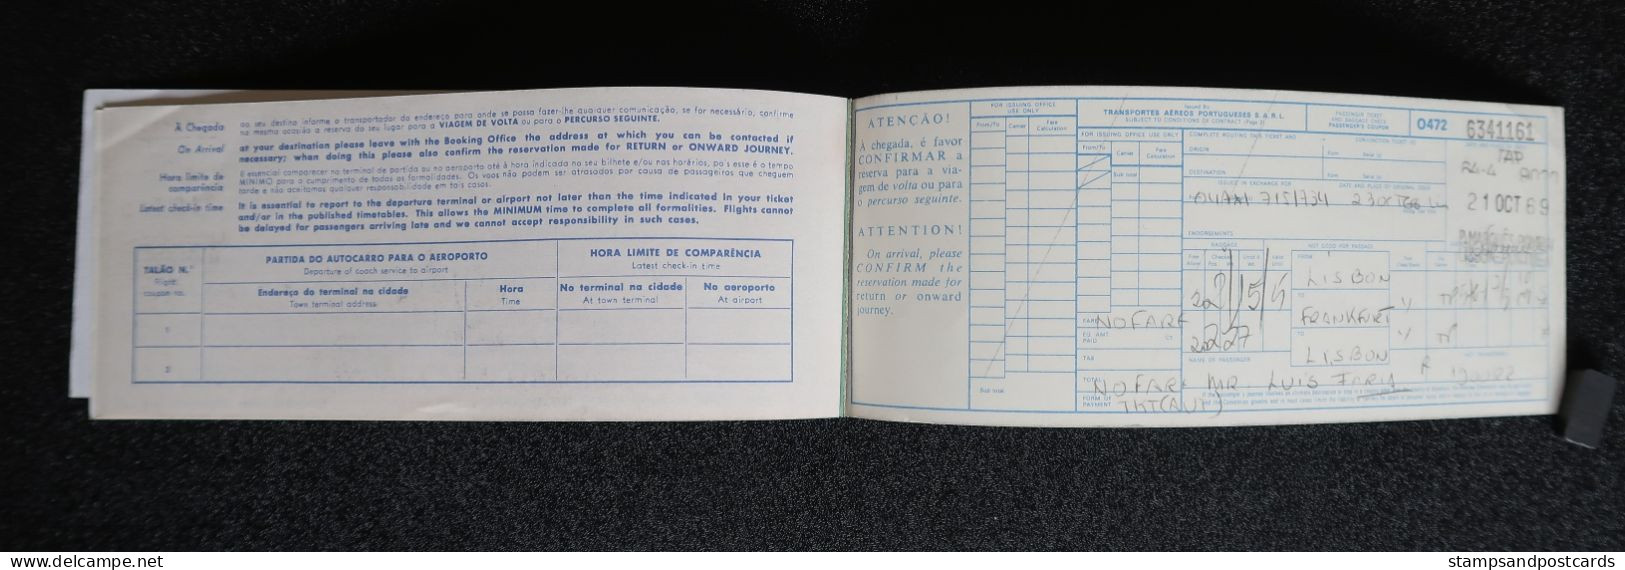 À Chegada
ao seu destino informe o transportador do endereço para onde se possa fazer-lhe qualquer comunicação, se for necessário, confirme
na mesma ocasião a reserva do seu lugar para a VIAGEM DE VOLTA ou para o PERCURSO SEGUINTE.
On Arrival
at your destination please leave with the Booking Office the address at which you can be contacted if
necessary; when doing this please also confirm the reservation made for RETURN or ONWARD JOURNEY.
Hora limite de
comparência
É essencial comparecer no terminal de partida ou no aeroporto até à hora indicada no seu bilhete e/ou nos horários, pois esse é o tempo
MÍNIMO para o cumprimento de todas as formalidades. Os voos não podem ser atrasados por causa de passageiros que cheguem
tarde e não aceitamos qualquer responsabilidade em tais casos.
Latest check-in time
It is essential to report to the departure terminal or airport not later than the time indicated in your ticket
and/or in the published timetables. This allows the MINIMUM time to complete all formalities. Flights cannot
be delayed for passengers arriving late and we cannot accept responsibility in such cases.
TALÃO N.º
Flight
coupon no.
PARTIDA DO AUTOCARRO PARA O AEROPORTO
Departure of coach service to airport
HORA LIMITE DE COMPARÊNCIA
Latest check-in time
Endereço do terminal na cidade
Town terminal address
Hora
Time
No terminal na cidade
At town terminal
No aeroporto
At airport
1
2
ATENÇÃO!
À chegada, é favor
CONFIRMAR a
reserva para a via-
gem de volta ou para
o percurso seguinte.
ATTENTION!
On arrival, please
CONFIRM the
reservation made for
return or onward
journey.
FOR ISSUING OFFICE
USE ONLY
From/To Carrier Fare
Calculation
Sub total
Issued by
TRANSPORTES AÉREOS PORTUGUESES S.A.R.L.
SUBJECT TO CONDITIONS OF CONTRACT (Page 2)
PASSENGER TICKET
AND BAGGAGE CHECK
PASSENGER'S COUPON
0472 6341161
FOR ISSUING OFFICE USE ONLY
From/To Carrier Fare
Calculation
Sub total
COMPLETE ROUTING THIS TICKET AND
CONJUNCTION TICKET(S)
ORIGIN
DESTINATION
TAP
21 OCT 69
ISSUED IN EXCHANGE FOR
DATE AND PLACE OF ORIGINAL ISSUE
ENDORSEMENTS
BAGGAGE
NOT GOOD FOR PASSAGE
FROM LISBON
TO FRANKFURT
TO LISBON
FARE NOFARE
EQ. AMT.
PAID
TAX
TOTAL NOFARE
FORM OF
PAYMENT TKT(AUT)
NAME OF PASSENGER
NOT TRANSFERABLE
MR. LUIS FARIA
stampsandpostcards